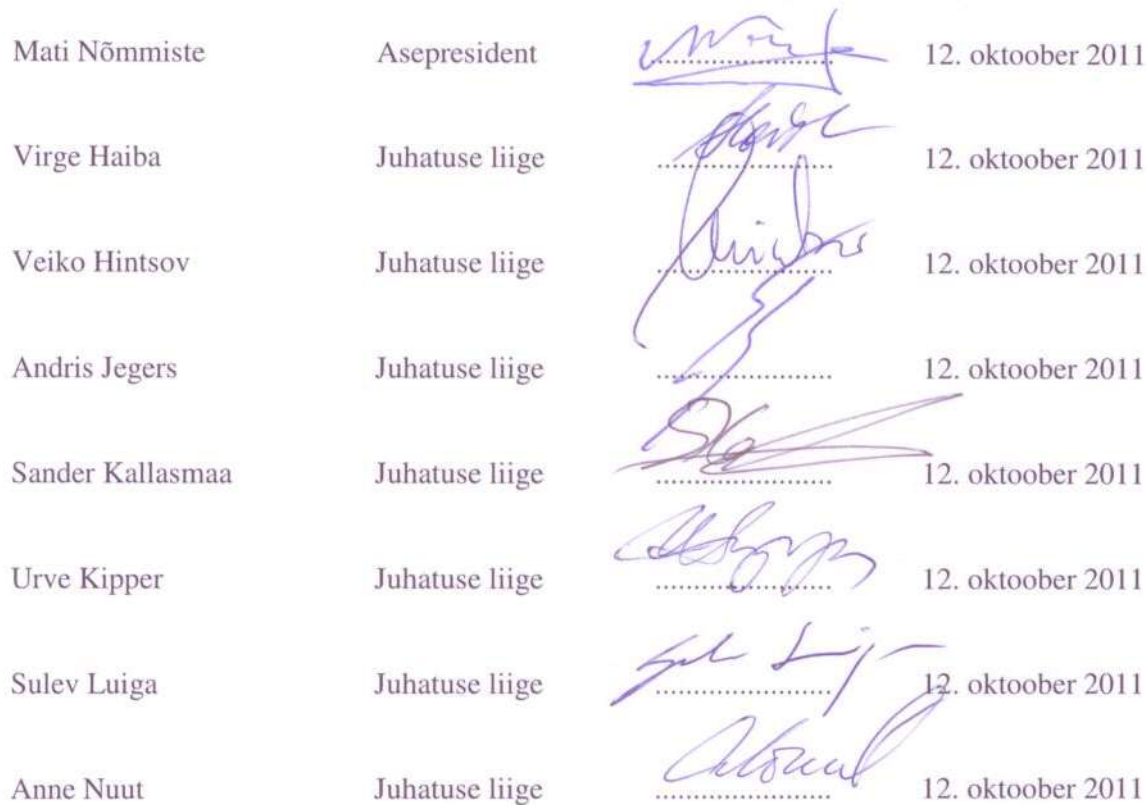 Mati Nõmmiste Asepresident .................... 12. oktoober 2011
Virge Haiba Juhatuse liige .................... 12. oktoober 2011
Veiko Hintsov Juhatuse liige .................... 12. oktoober 2011
Andris Jegers Juhatuse liige .................... 12. oktoober 2011
Sander Kallasmaa Juhatuse liige .................... 12. oktoober 2011
Urve Kipper Juhatuse liige .................... 12. oktoober 2011
Sulev Luiga Juhatuse liige .................... 12. oktoober 2011
Anne Nuut Juhatuse liige .................... 12. oktoober 2011